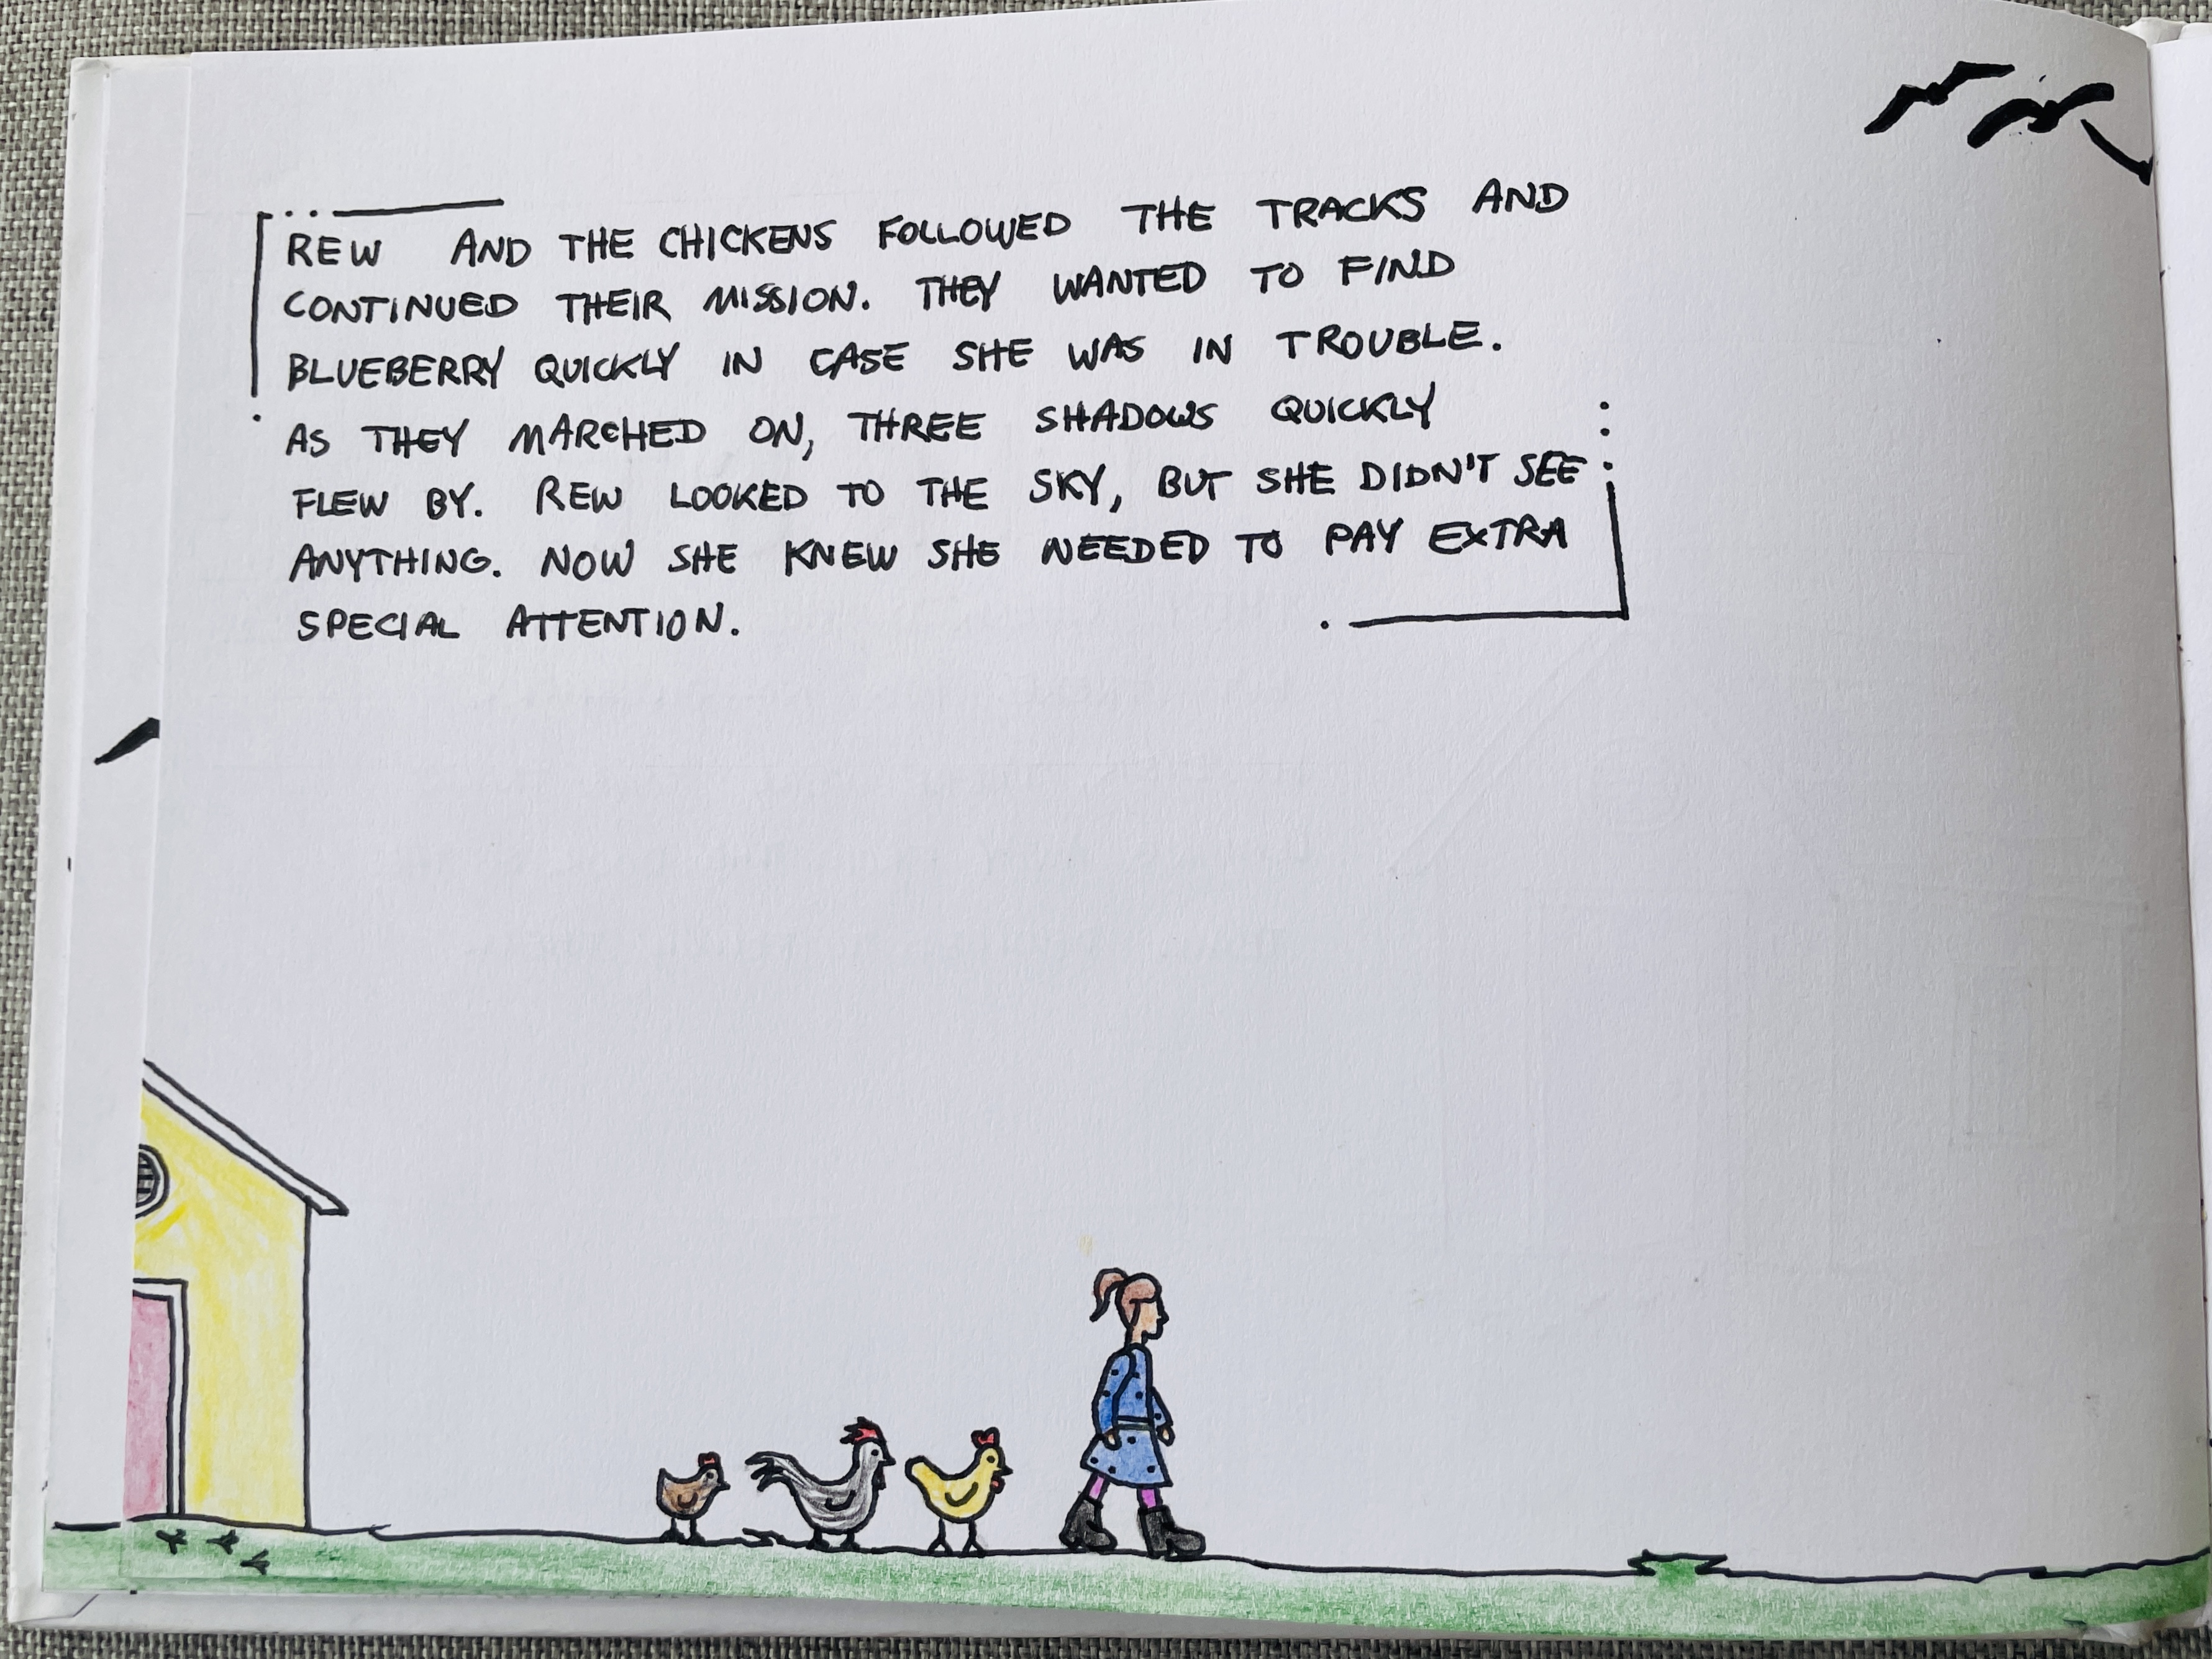 REW AND THE CHICKENS FOLLOWED THE TRACKS AND
CONTINUED THEIR MISSION. THEY WANTED TO FIND
BLUEBERRY QUICKLY IN CASE SHE WAS IN TROUBLE.
AS THEY MARCHED ON, THREE SHADOWS QUICKLY
FLEW BY. REW LOOKED TO THE SKY, BUT SHE DIDN'T SEE
ANYTHING. NOW SHE KNEW SHE NEEDED TO PAY EXTRA
SPECIAL ATTENTION.